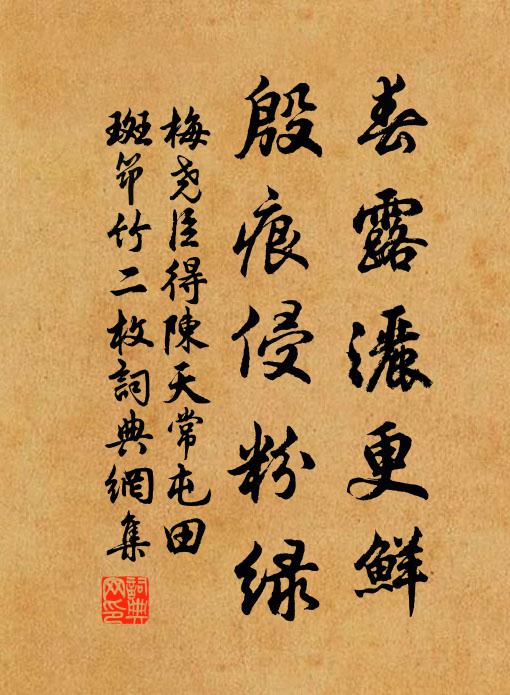 春露灑更鮮
殷痕侵粉綠
梅堯臣得陳天常屯田
斑笻竹二枚詞典網集
詞典網印